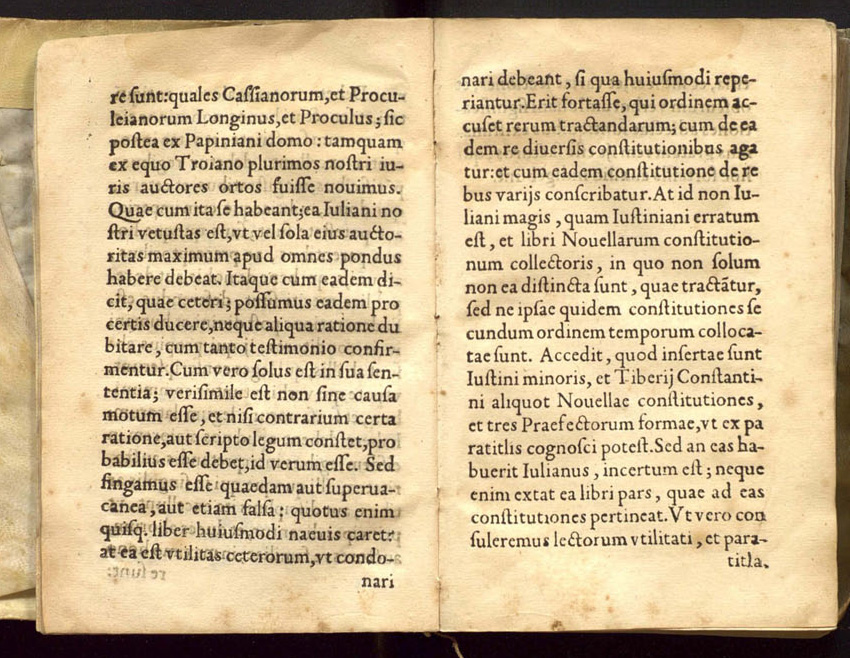 re sunt:quales Cassianorum,et Procu-
leianorum Longinus,et Proculus; sic
postea ex Papiniani domo : tamquam
ex equo Troiano plurimos nostri iu-
ris auctores ortos fuisse nouimus.
Quae cum ita se habeant;ea Iuliani no
stri vetustas est,vt vel sola eius aucto-
ritas maximum apud omnes pondus
habere debeat. Itaque cum eadem di-
cit, quae ceteri; possumus eadem pro
certis ducere,neque aliqua ratione du
bitare, cum tanto testimonio confir-
mentur.Cum vero solus est in sua sen-
tentia; verisimile est non sine causa
motum esse, et nisi contrarium certa
ratione,aut scripto legum constet,pro
babilius esse debet,id verum esse. Sed
fingamus esse quaedam aut superua-
canea, aut etiam falsa: quotus enim
quisq. liber huiusmodi naeuis caret?
at ea est vtilitas ceterorum,vt condo-
nari
nari debeant, si qua huiusmodi repe-
riantur.Erit fortasse, qui ordinem ac-
cuset rerum tractandarum; cum de ea
dem re diuersis constitutionibus aga
tur:et cum eadem constitutione de re
bus varijs conscribatur.At id non Iu-
liani magis, quam Iustiniani erratum
est, et libri Nouellarum constitutio-
num collectoris, in quo non solum
non ea distincta sunt, quae tractãtur,
sed ne ipsae quidem constitutiones se
cundum ordinem temporum colloca-
tae sunt. Accedit, quod insertae sunt
Iustini minoris, et Tiberij Constanti-
ni aliquot Nouellae constitutiones,
et tres Praefectorum formae,vt ex pa
ratitlis cognosci potest.Sed an eas ha-
buerit Iulianus, incertum est; neque
enim extat ea libri pars, quae ad eas
constitutiones pertineat.Vt vero con
suleremus lectorum vtilitati, et para-
titla.